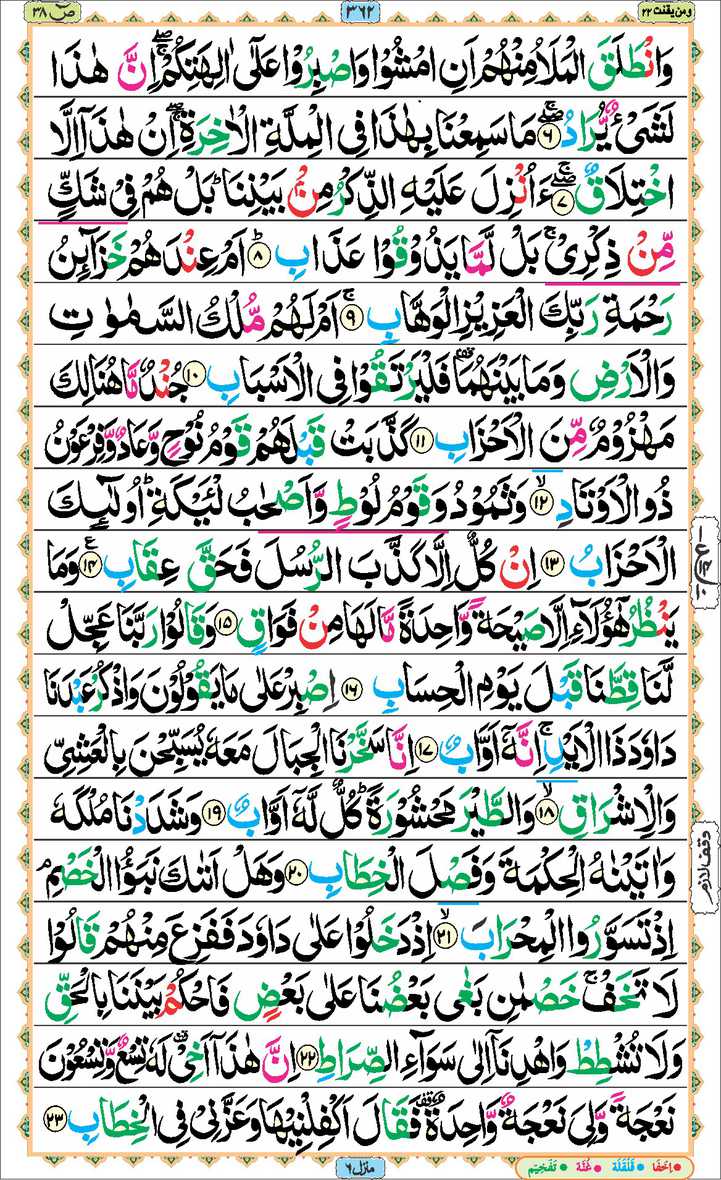 ومن یقنت ۲۳
۳۶۲
صٓ ۳۸
وَانْطَلَقَ الْمَلَاُ مِنْهُمْ اَنِ امْشُوْا وَاصْبِرُوْا عَلٰۤی اٰلِهَتِكُمْ ۖۚ اِنَّ هٰذَا
لَشَیْءٌ یُّرَادُ ۖۚ ﴿۶﴾ مَا سَمِعْنَا بِهٰذَا فِی الْمِلَّةِ الْاٰخِرَةِ ۖۚ اِنْ هٰذَاۤ اِلَّا
اخْتِلَاقٌ ۖۚ ﴿۷﴾ ءَاُنْزِلَ عَلَیْهِ الذِّكْرُ مِنْۢ بَیْنِنَا ؕ بَلْ هُمْ فِیْ شَكٍّ
مِّنْ ذِكْرِیْ ۚ بَلْ لَّمَّا یَذُوْقُوْا عَذَابِ ؕ ﴿۸﴾ اَمْ عِنْدَهُمْ خَزَآىِٕنُ
رَحْمَةِ رَبِّكَ الْعَزِیْزِ الْوَهَّابِ ۚ ﴿۹﴾ اَمْ لَهُمْ مُّلْكُ السَّمٰوٰتِ
وَالْاَرْضِ وَمَا بَیْنَهُمَا ۫ فَلْیَرْتَقُوْا فِی الْاَسْبَابِ ﴿۱۰﴾ جُنْدٌ مَّا هُنَالِكَ
مَهْزُوْمٌ مِّنَ الْاَحْزَابِ ﴿۱۱﴾ كَذَّبَتْ قَبْلَهُمْ قَوْمُ نُوْحٍ وَّعَادٌ وَّفِرْعَوْنُ
ذُو الْاَوْتَادِ ۙ ﴿۱۲﴾ وَثَمُوْدُ وَقَوْمُ لُوْطٍ وَّاَصْحٰبُ لْـَٔیْكَةِ ؕ اُولٰٓىِٕكَ
الْاَحْزَابُ ﴿۱۳﴾ اِنْ كُلٌّ اِلَّا كَذَّبَ الرُّسُلَ فَحَقَّ عِقَابِ ﴿۱۴﴾ ع وَمَا
یَنْظُرُ هٰۤؤُلَآءِ اِلَّا صَیْحَةً وَّاحِدَةً مَّا لَهَا مِنْ فَوَاقٍ ﴿۱۵﴾ وَقَالُوْا رَبَّنَا عَجِّلْ
لَّنَا قِطَّنَا قَبْلَ یَوْمِ الْحِسَابِ ﴿۱۶﴾ اِصْبِرْ عَلٰی مَا یَقُوْلُوْنَ وَاذْكُرْ عَبْدَنَا
دَاوٗدَ ذَا الْاَیْدِ ۚ اِنَّهٗۤ اَوَّابٌ ﴿۱۷﴾ اِنَّا سَخَّرْنَا الْجِبَالَ مَعَهٗ یُسَبِّحْنَ بِالْعَشِیِّ
وَالْاِشْرَاقِ ۙ ﴿۱۸﴾ وَالطَّیْرَ مَحْشُوْرَةً ؕ كُلٌّ لَّهٗۤ اَوَّابٌ ﴿۱۹﴾ وَشَدَدْنَا مُلْكَهٗ
وَاٰتَیْنٰهُ الْحِكْمَةَ وَفَصْلَ الْخِطَابِ ﴿۲۰﴾ وَهَلْ اَتٰىكَ نَبَؤُا الْخَصْمِ ۘ
اِذْ تَسَوَّرُوا الْمِحْرَابَ ۙ ﴿۲۱﴾ اِذْ دَخَلُوْا عَلٰی دَاوٗدَ فَفَزِعَ مِنْهُمْ قَالُوْا
لَا تَخَفْ ۚ خَصْمٰنِ بَغٰی بَعْضُنَا عَلٰی بَعْضٍ فَاحْكُمْ بَیْنَنَا بِالْحَقِّ
وَلَا تُشْطِطْ وَاهْدِنَاۤ اِلٰی سَوَآءِ الصِّرَاطِ ﴿۲۲﴾ اِنَّ هٰذَاۤ اَخِیْ ۫ لَهٗ تِسْعٌ وَّتِسْعُوْنَ
نَعْجَةً وَّلِیَ نَعْجَةٌ وَّاحِدَةٌ ۫ فَقَالَ اَكْفِلْنِیْهَا وَعَزَّنِیْ فِی الْخِطَابِ ﴿۲۳﴾
وقف لازم
منزل ۶
اخفا • قلقلة • غنّة • تفخیم •